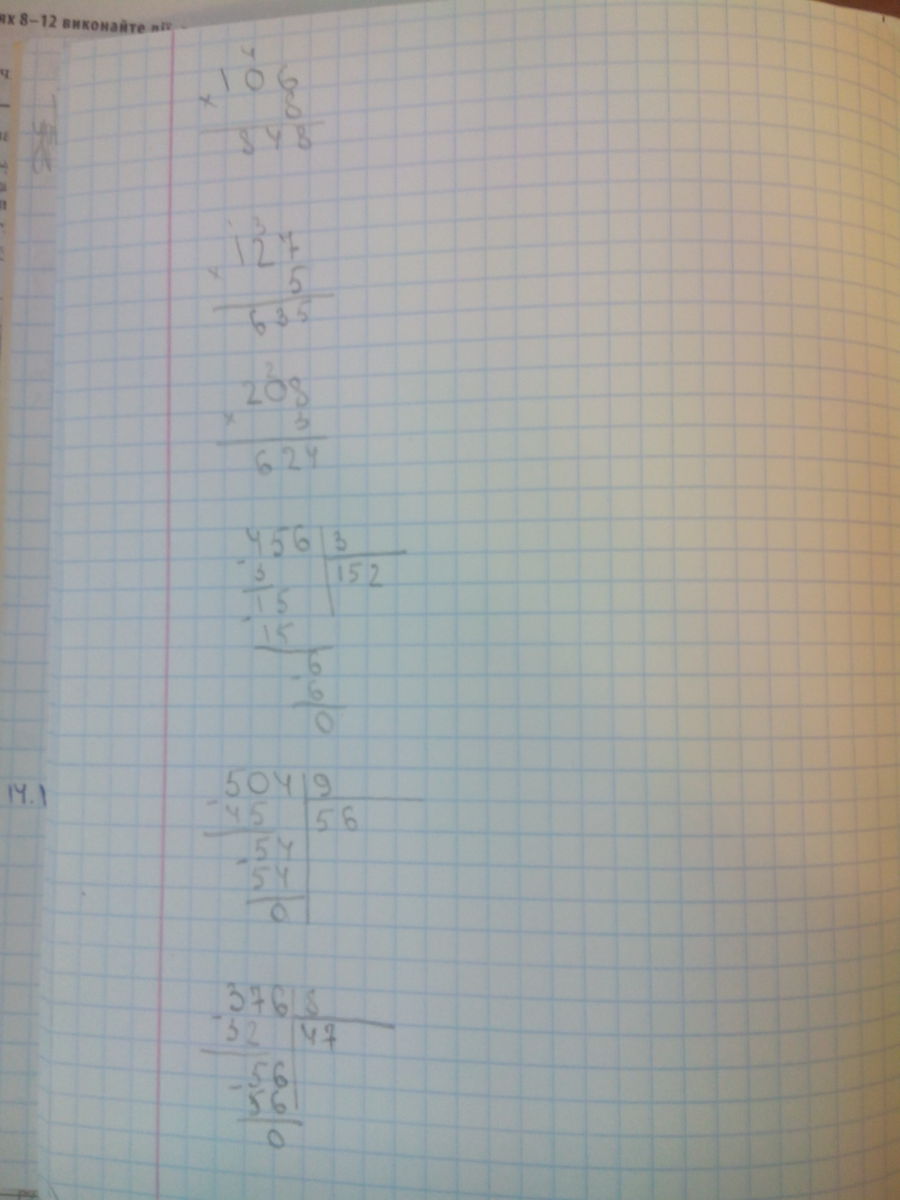 ях 8–12 виконайте
4
106
× 8
848
1 3
127
× 5
635
2
208
× 3
624
456 | 3
- 3 | 152
15
- 15
6
- 6
0
14.1
504 | 9
- 45 | 56
54
- 54
0
376 | 8
- 32 | 47
56
- 56
0